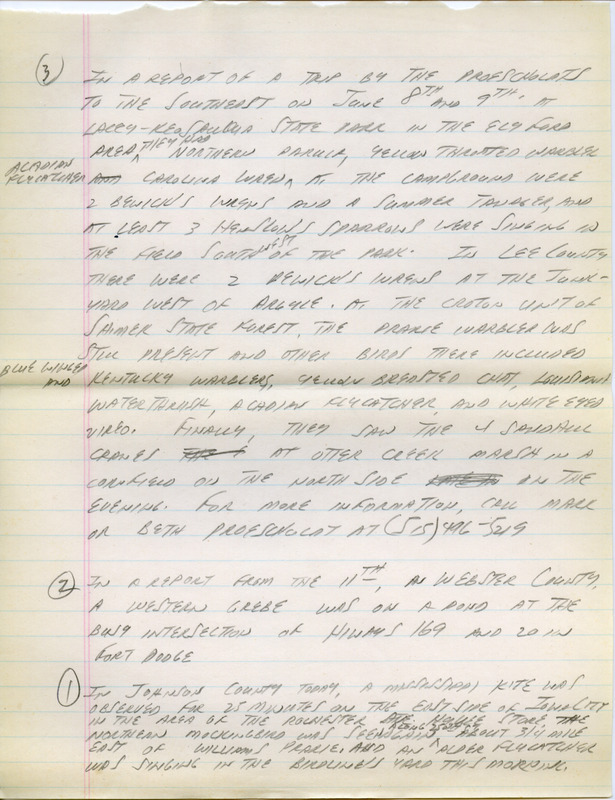 (3) IN A REPORT OF A TRIP BY THE PROESCHOLDTS
TO THE SOUTHEAST ON JUNE 8TH AND 9TH. AT
LACEY-KEOSAUQUA STATE PARK IN THE ELY FORD
AREA, THEY HAD NORTHERN PARULA, YELLOW THROATED WARBLER
ACADIAN
FLYCATCHER
CAROLINA WREN, AT THE CAMPGROUND WERE
2 BEWICK'S WRENS AND A SUMMER TANAGER, AND
AT LEAST 3 HENSLOW'S SPARROWS WERE SINGING IN
THE FIELD SOUTHWEST OF THE PARK. IN LEE COUNTY
THERE WERE 2 BEWICK'S WRENS AT THE JUNK-
YARD WEST OF ARGYLE. AT THE CROTON UNIT OF
SHIMEK STATE FOREST, THE PRARIE WARBLER WAS
STILL PRESENT AND OTHER BIRDS THERE INCLUDED
BLUE WINGED
AND
KENTUCKY WARBLERS, YELLOW BREASTED CHAT, LOUISIANA
WATERTHRUSH, ACADIAN FLYCATCHER, AND WHITE EYED
VIREO. FINALLY, THEY SAW THE 4 SANDHILL
CRANES AT OTTER CREEK MARSH IN A
CORNFIELD ON THE NORTH SIDE IN THE
EVENING. FOR MORE INFORMATION, CALL MARK
OR BETH PROESCHOLDT AT (515) 496-5219
(2) IN A REPORT FROM THE 11TH, IN WEBSTER COUNTY,
A WESTERN GREBE WAS ON A POND AT THE
BUSY INTERSECTION OF HIWAYS 169 AND 20 IN
FORT DODGE
(1) IN JOHNSON COUNTY TODAY, A MISSISSIPPI KITE WAS
OBSERVED FOR 25 MINUTES ON THE EAST SIDE OF IOWA CITY
IN THE AREA OF THE ROCHESTER STORE, THE
NORTHERN MOCKINGBIRD WAS SEEN AGAIN ABOUT 3/4 MILE
EAST OF WILLIAMS PRARIE. AND AN ALDER FLYCATCHER
WAS SINGING IN THE BIRDLINE'S YARD THIS MORNING.